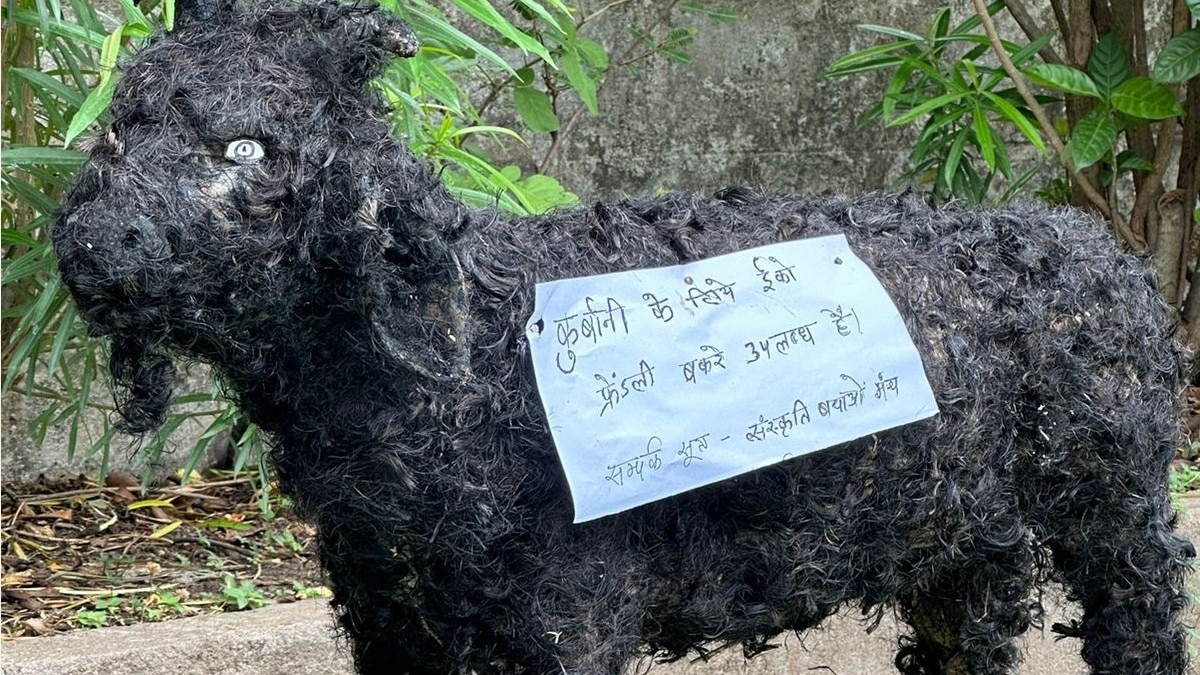 कुर्बानी के लिये ईको
फ्रेंडली बकरे उपलब्ध है।
सम्पर्क सूत्र - संस्कृति बचाओं मंच